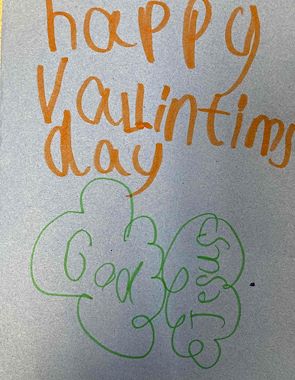 happy
Vallintims
day
God
Jesus